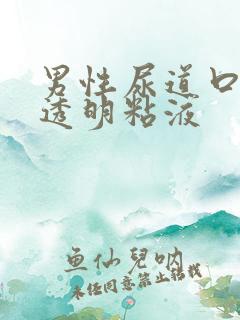 男性尿道口
透明粘液
鱼仙兒呐
未经同意禁止转载